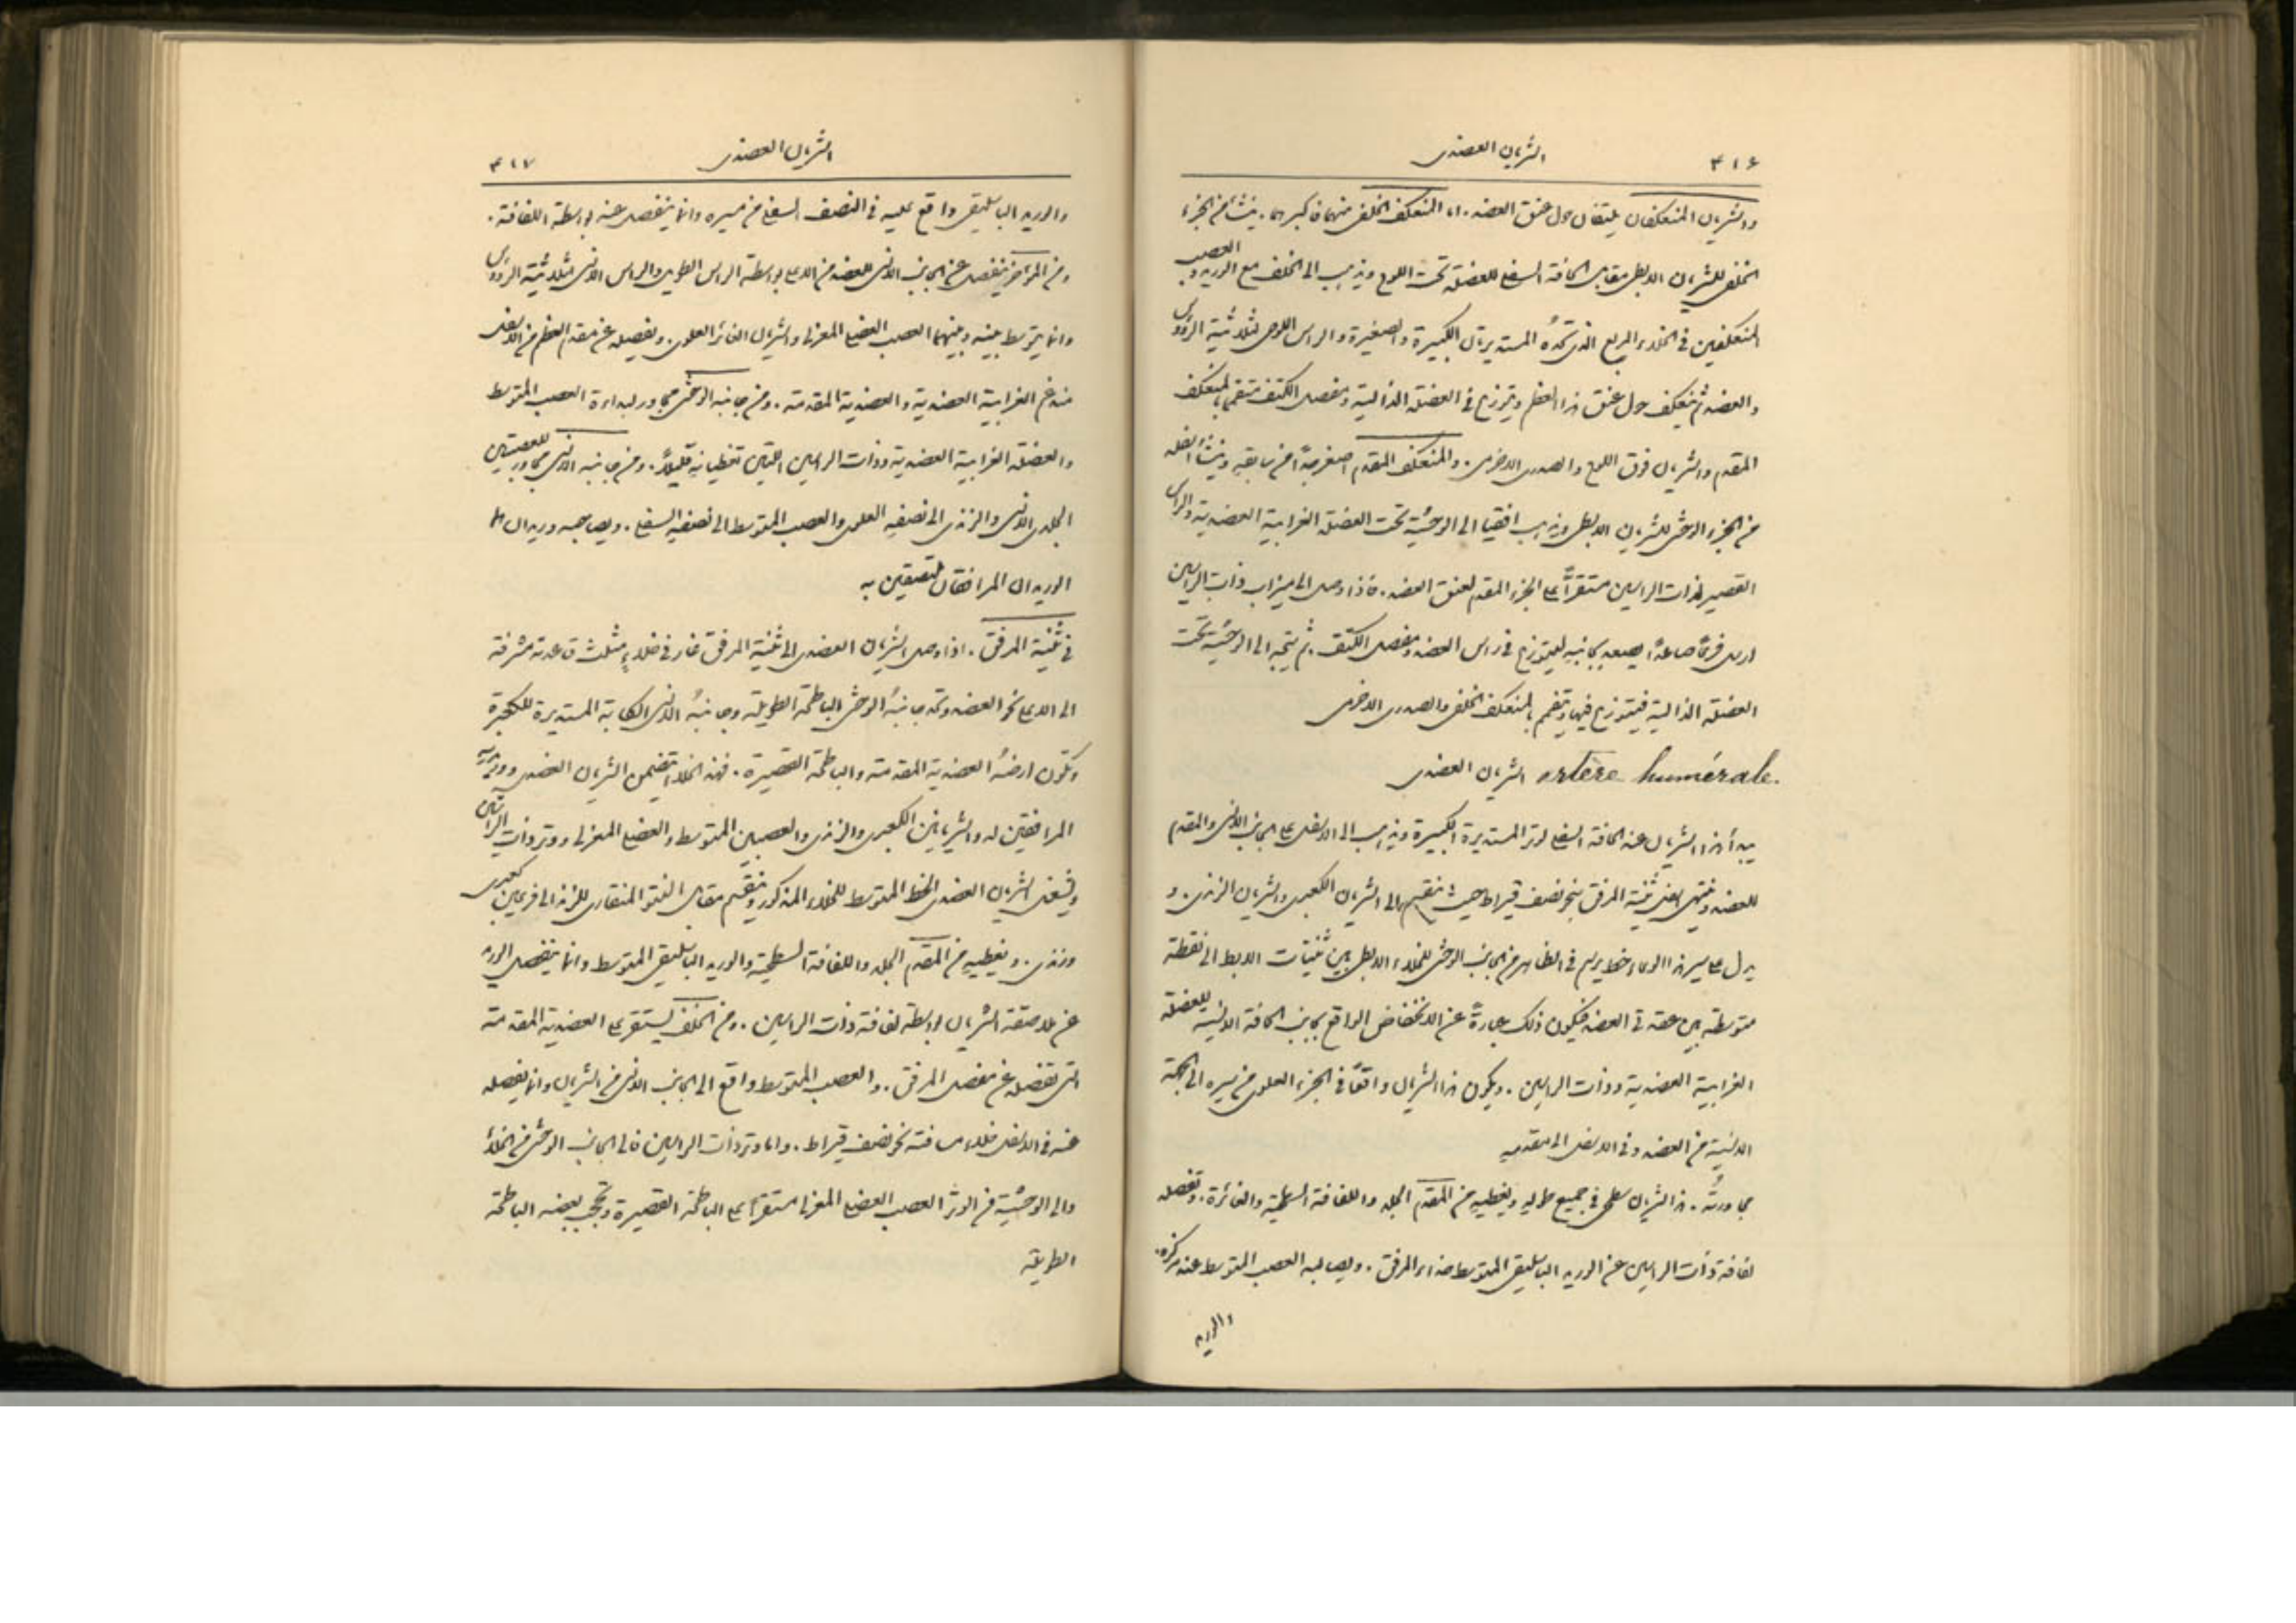 ٣١٦ الشريان العضدى
والشريان المنعكفان يلتفان حول عنق العضد. اما المنعكف الخلفى منهما فاكبرهما. ينشأ من الجزء
الخلفى للشريان الابطى مقابل الحافة السفلى للعضلة تحت اللوح ويذهب الى الخلف مع الوريد والعصب
المنعكفين فى الخلاء المربع الذى تحده المستديرتان الكبيرة والصغيرة والراس اللوحى لثلاثية الرؤوس
والعضد ثم ينعكف حول عنق هذا العظم ويتوزع فى العضلة الدالية ومفصل الكتف متفمماً بالمنعكف
المقدم والشريان فوق اللوح والصدرى الاخرمى. والمنعكف المقدم اصغر حجماً من سابقه وينشأ مثله
من الجزء الوحشى للشريان الابطى ويذهب افقياً الى الوحشية تحت العضلة الغرابية العضدية والراس
القصير لذات الراسين مستقراً على الجزء المقدم لعنق العضد. فاذا وصل الى ميزاب ذات الراسين
ارسل فرعاً صاعداً يصعد بجانبه ليتوزع فى راس العضد ومفصل الكتف. ثم يتجه الى الوحشية تحت
العضلة الدالية فيتوزع فيها ويتفمم بالمنعكف الخلفى والصدرى الاخرمى
artère humérale. الشريان العضدى
يبدأ هذا الشريان عند الحافة السفلى لوتر المستديرة الكبيرة ويذهب الى الاسفل على الجانب الانسى والمقدم
للعضد وينتهى اسفل ثنية المرفق بنحو نصف قيراط حيث ينقسم الى الشريان الكعبرى والشريان الزندى. و
يدل على سير هذا الوعاء خط يرسم فى الظاهر من الجانب الوحشى للخلاء الابطى بين ثنيات الابط الى نقطة
متوسطة بين عقدتى العضد فيكون ذلك عبارةً عن الانخفاض الواقع بجانب الحافة الانسية للعضلة
الغرابية العضدية وذات الراسين. ويكون هذا الشريان واقعاً فى الجزء العلوى من سيره الى الجهة
الانسية من العضد وفى الاسفل الى مقدمه
مجاورته. هذا الشريان سطحى فى جميع طوله ويغطيه من المقدم الجلد واللفافة السطحية والغائرة. وتفصله
لفافة ذات الراسين عن الوريد الباسليقى المتوسط حذاء المرفق. ويصالبه العصب المتوسط عند مركزه.
والوريد
الشريان العضدى ٣١٧
والوريد الباسليقى واقع عليه فى النصف السفلى من مسيره وانما ينفصل عنه بواسطة اللفافة.
ومن المؤخر ينفصل عن الجانب الانسى للعضد من الاعلى بواسطة الراس الطويل والراس الانسى لثلاثية الرؤوس
وانما يتوسط بينه وبينهما العصب العضلى المغزلى والشريان الغائر العلوى. ويفصله عن مقدم العظم من الاسفل
مندغم الغرابية العضدية والعضدية المقدمة. ومن جانبه الوحشى مجاور لبداءة العصب المتوسط
والعضلة الغرابية العضدية وذات الراسين اللتين تغطيانه قليلاً. ومن جانبه الانسى مجاور للعصبين
الجلدى الانسى والزندى الى نصفه العلوى والعصب المتوسط الى نصفه السفلى. ويصاحبه وريدان هما
الوريدان المرافقان ملتصقين به
فى ثنية المرفق. اذا وصل الشريان العضدى الى ثنية المرفق غار فى خلاء مثلث قاعدته مشرفة
الى الاعلى نحو العضد وتحد جانبه الوحشى الباطحة الطويلة وجانبه الانسى الكابة المستديرة للكعبرة
وتكون ارضه العضدية المقدمة والباطحة القصيرة. فهذا الخلاء يتضمن الشريان العضدى ووريديه
المرافقين له والشريانين الكعبرى والزندى والعصبين المتوسط والعضلى المغزلى ووتر ذات الراسين
ويشغل الشريان العضدى الخط المتوسط للخلاء المذكور وينقسم مقابل النتو المنقارى للزند الى فرعين كعبرى
وزندى. ويغطيه من المقدم الجلد واللفافة السطحية والوريد الباسليقى المتوسط وانما ينفصل الوريد
عن ملاصقة الشريان بواسطة لفافة ذات الراسين. ومن الخلف يستقر على العضدية المقدمة
التى تفصله عن مفصل المرفق. والعصب المتوسط واقع الى الجانب الانسى من الشريان وانما يفصله
عنه فى الاسفل خلاء مسافته نحو نصف قيراط. واما وتر ذات الراسين فالى الجانب الوحشى من الخلاء
والى الوحشية من الوتر العصب العضلى المغزلى مستقراً على الباطحة القصيرة وتحجب بعضه الباطحة
الطويلة